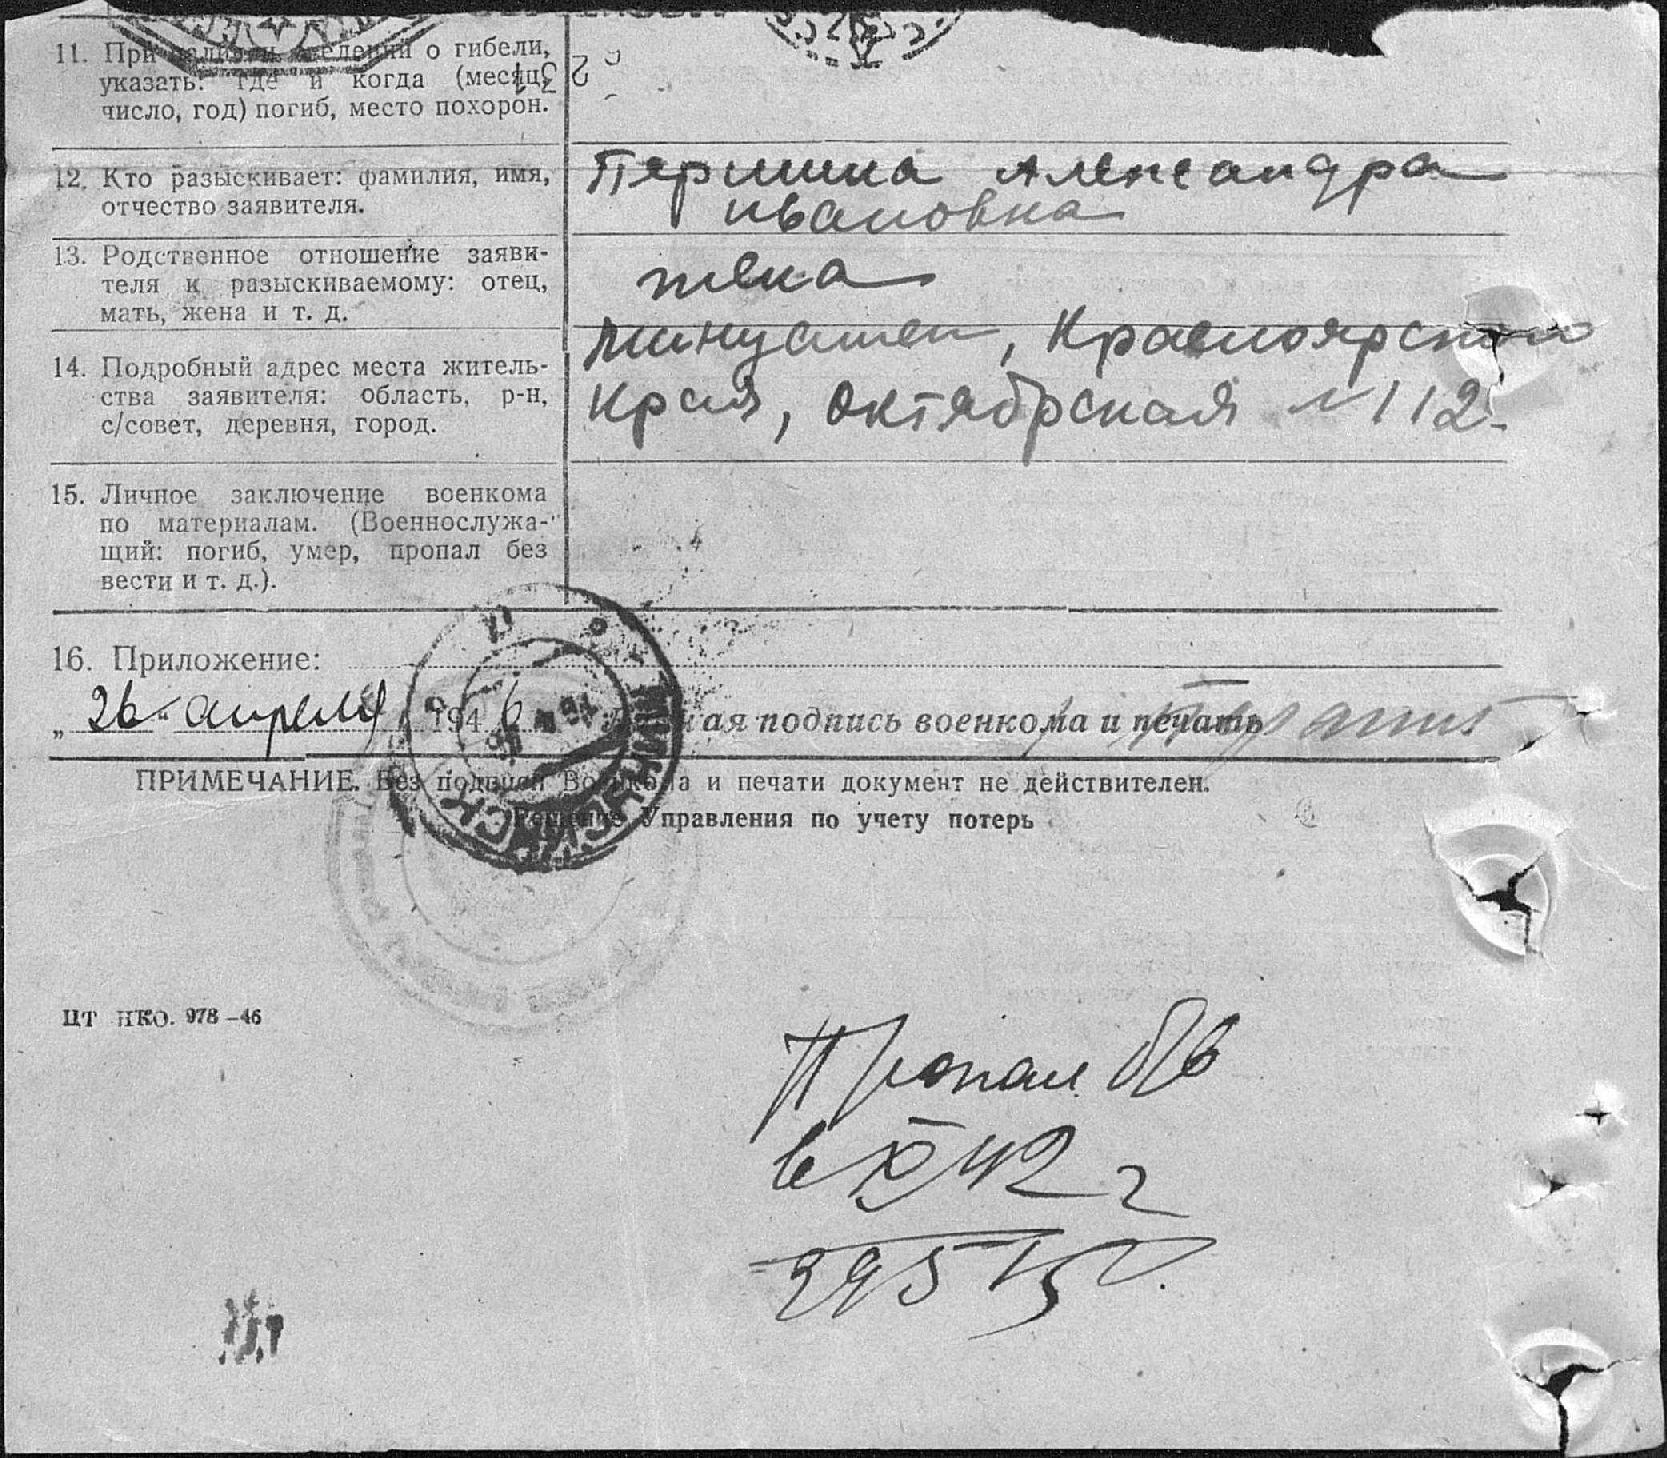 11. При наличии сведений о гибели,
указать: где и когда (месяц,
число, год) погиб, место похорон.
12. Кто разыскивает: фамилия, имя,
отчество заявителя.
Першина Александра
Ивановна
13. Родственное отношение заяви-
теля к разыскиваемому: отец,
мать, жена и т. д.
жена
14. Подробный адрес места житель-
ства заявителя: область, р-н,
с/совет, деревня, город.
Минусинск, Красноярского
края, Октябрьская № 112.
15. Личное заключение военкома
по материалам. (Военнослужа-
щий: погиб, умер, пропал без
вести и т. д.).
16. Приложение:
„26" апреля 1946 Личная подпись военкома и печать
ПРИМЕЧАНИЕ. Без подписи Военкома и печати документ не действителен.
Решение Управления по учету потерь
МИНУСИНСК
ЦТ НКО. 978-46
Пропал б/в
в 42 г